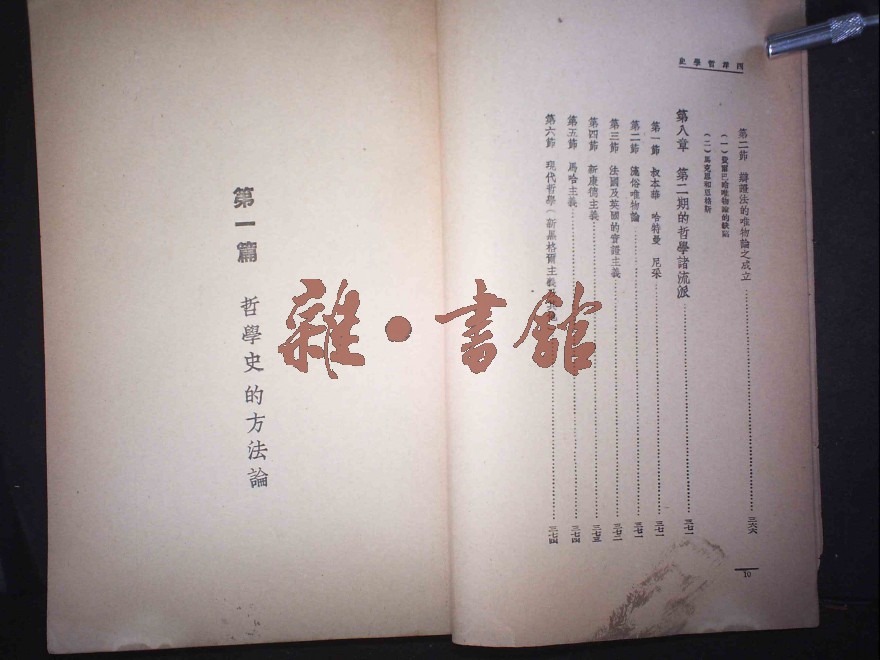 西洋哲學史
第二節 辯證法的唯物論之成立 三六六
(一)費爾巴哈唯物論的缺陷
(二)馬克思和恩格斯
第八章 第二期的哲學諸流派 三七一
第一節 叔本華 哈特曼 尼采 三七一
第二節 淺俗唯物論 三七一
第三節 法國及英國的實證主義 三七二
第四節 新康德主義 三七三
第五節 馬哈主義 三七四
第六節 現代哲學(新黑格爾主義 三七四
10
第一篇 哲學史的方法論
雜·書館